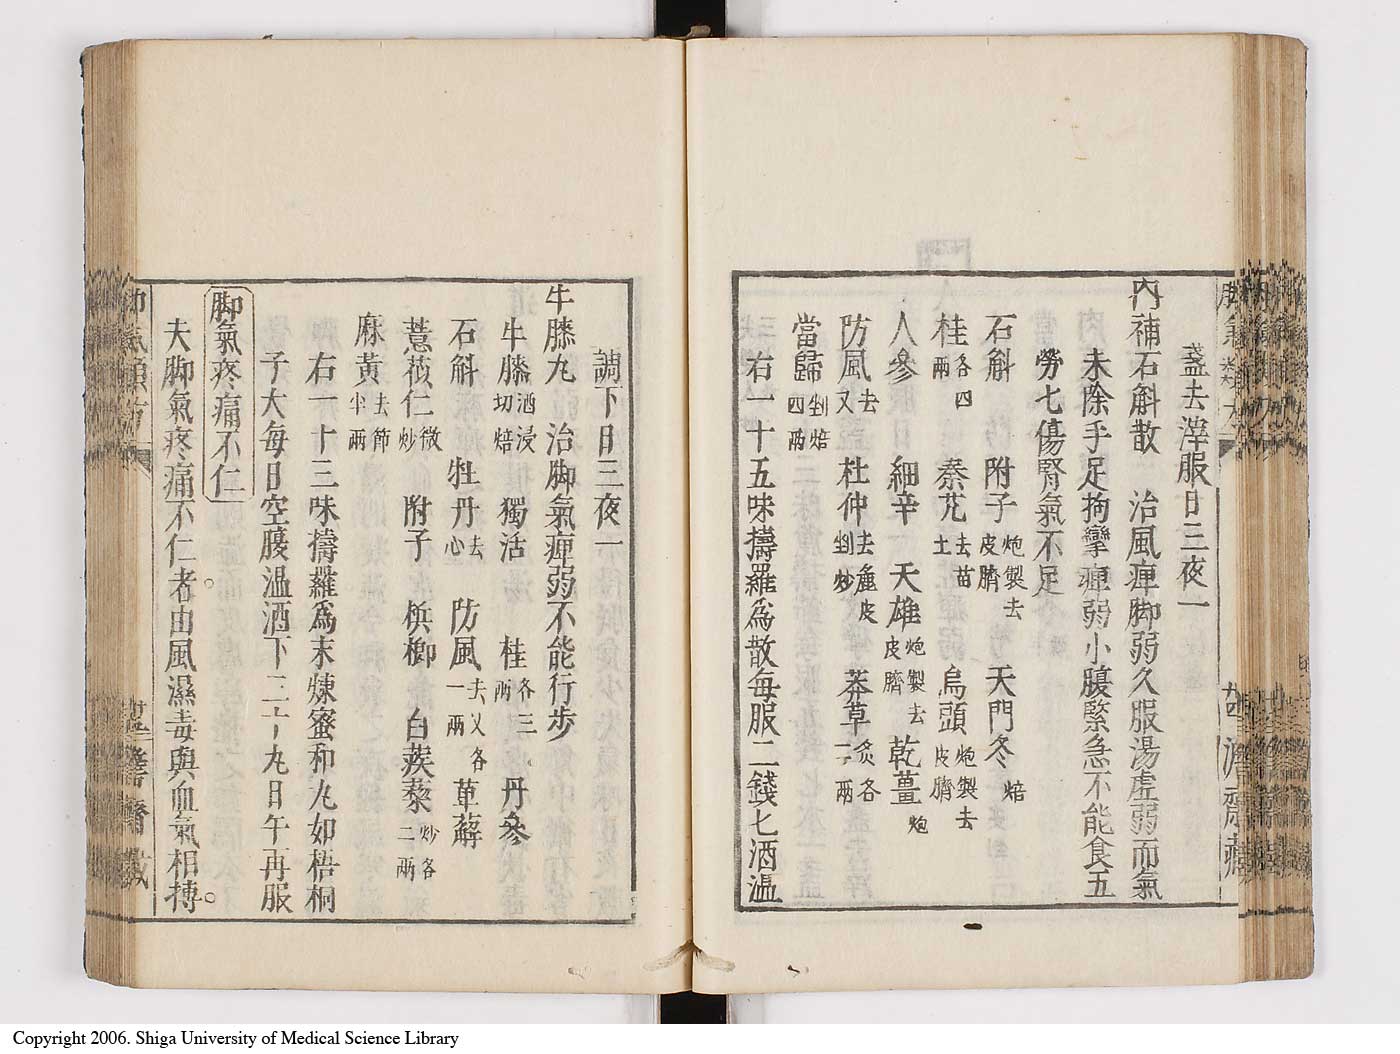 盞去滓服日三夜一
內補石斛散　治風痺脚弱久服湯虛弱而氣
未除手足拘攣痺弱小腹緊急不能食五
勞七傷腎氣不足
石斛　附子炮製去皮臍　天門冬焙
桂各四兩　秦艽去苗土　烏頭炮製去皮臍
人參　細辛　天雄炮製去皮臍　乾薑炮
防風去叉　杜仲去麁皮剉炒　莽草炙各一兩
當歸剉焙四兩
右一十五味擣羅爲散每服二錢匕酒溫
調下日三夜一
牛膝丸　治脚氣痺弱不能行步
牛膝酒浸切焙　獨活　桂各三兩　丹參
石斛　牡丹去心　防風去叉各一兩　萆薢
薏苡仁微炒　附子　檳榔　白蒺藜炒各二兩
麻黃去節半兩
右一十三味擣羅爲末煉蜜和丸如梧桐
子大每日空腹溫酒下二十九日午再服
脚氣疼痛不仁
夫脚氣疼痛不仁者由風濕毒與血氣相搏
Copyright 2006. Shiga University of Medical Science Library